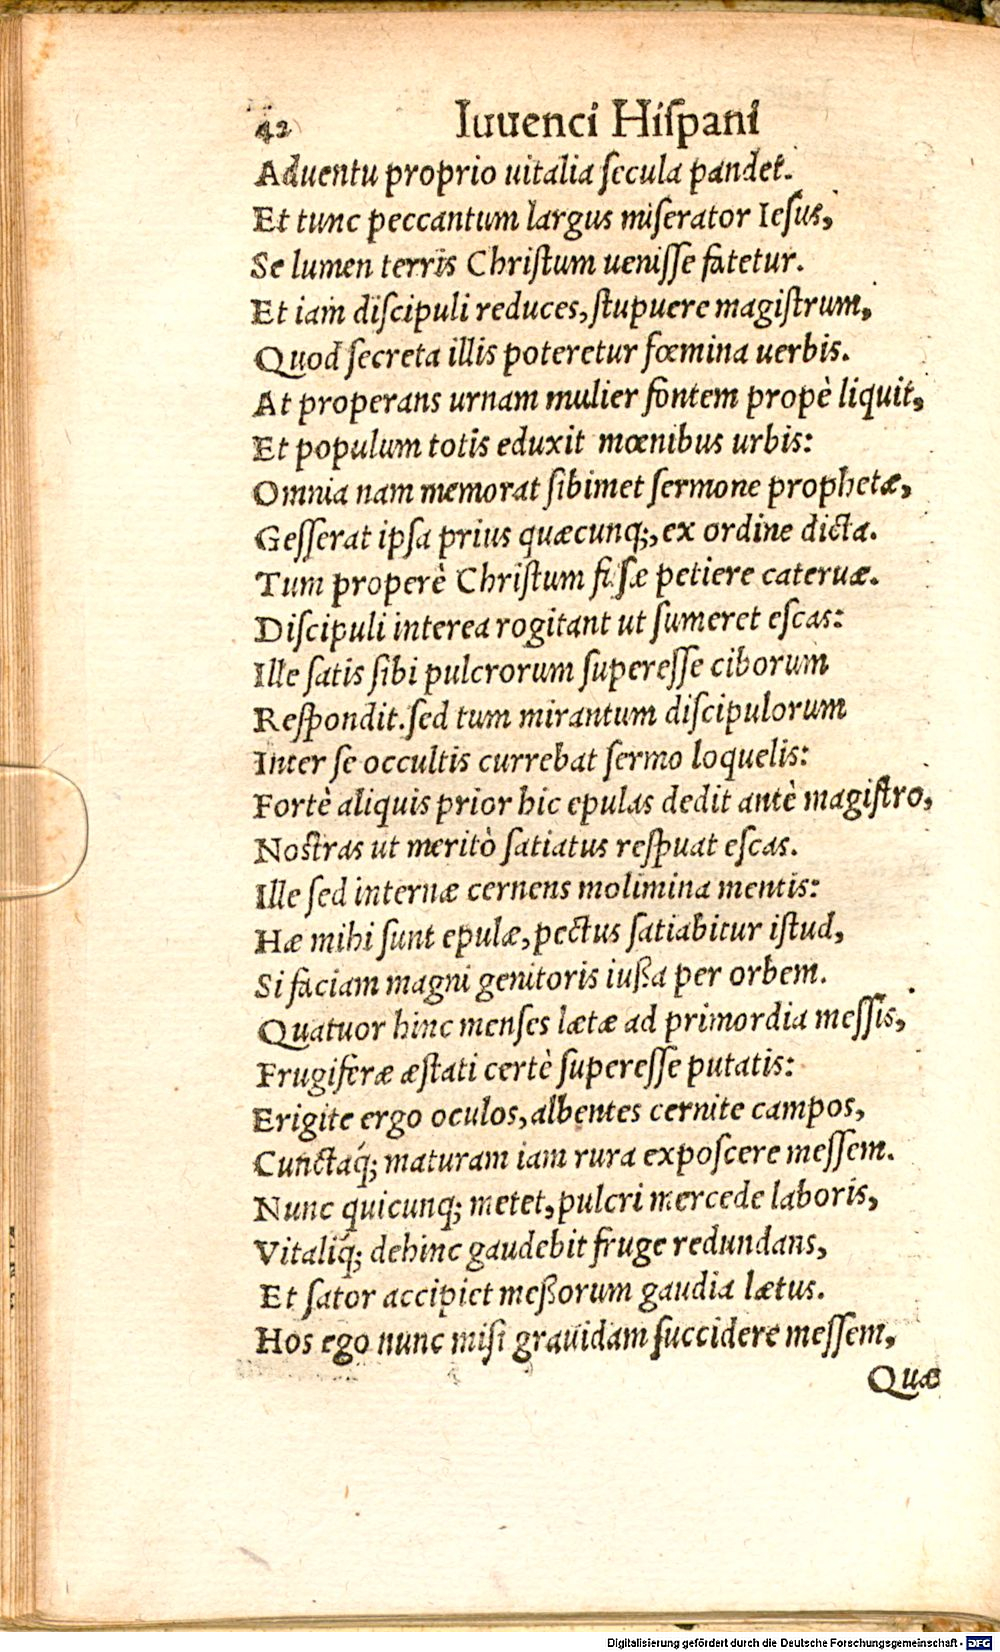 42 Iuuenci Hiſpani
Aduentu proprio uitalia ſecula pandet.
Et tunc peccantum largus miſerator Ieſus,
Se lumen terris Chriſtum ueniſſe fatetur.
Et iam diſcipuli reduces, ſtupuere magiſtrum,
Quod ſecreta illis poteretur fœmina uerbis.
At properans urnam mulier fontem propè liquit,
Et populum totis eduxit mœnibus urbis:
Omnia nam memorat ſibimet ſermone prophetæ,
Geſſerat ipſa prius quæcunq;, ex ordine dicta.
Tum properè Chriſtum petiere cateruæ.
Diſcipuli interea rogitant ut ſumeret eſcas:
Ille ſatis ſibi pulcrorum ſupereſſe ciborum
Reſpondit. ſed tum mirantum diſcipulorum
Inter ſe occultis currebat ſermo loquelis:
Fortè aliquis prior hic epulas dedit antè magiſtro,
Noſtras ut meritò ſatiatus reſpuat eſcas.
Ille ſed internæ cernens molimina mentis:
Hæ mihi ſunt epulæ, pectus ſatiabitur iſtud,
Si faciam magni genitoris iußa per orbem.
Quatuor hinc menſes lætæ ad primordia meſſis,
Frugiferæ æſtati certè ſupereſſe putatis:
Erigite ergo oculos, albentes cernite campos,
Cunctaq́; maturam iam rura expoſcere meſſem.
Nunc quicunq; metet, pulcri mercede laboris,
Vitaliq́; dehinc gaudebit fruge redundans,
Et ſator accipiet meßorum gaudia lætus.
Hos ego nunc miſi grauidam ſuccidere meſſem,
Quæ
Digitalisierung gefördert durch die Deutsche Forschungsgemeinschaft - DFG